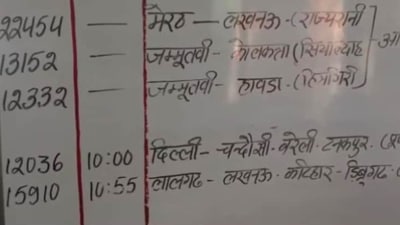 22454 — मेरठ — लखनऊ - (राज्यरानी
13152 — जम्मूतवी - कोलकता (सियाल्दाह
12332 — जम्मूतवी - हावडा - (हिमगिरी)
12036 10:00 दिल्ली - चन्दौसी - बरेली - टनकपुर - (
15910 10:55 लालगढ - लखनऊ - कटिहार - डिब्रूगढ - (